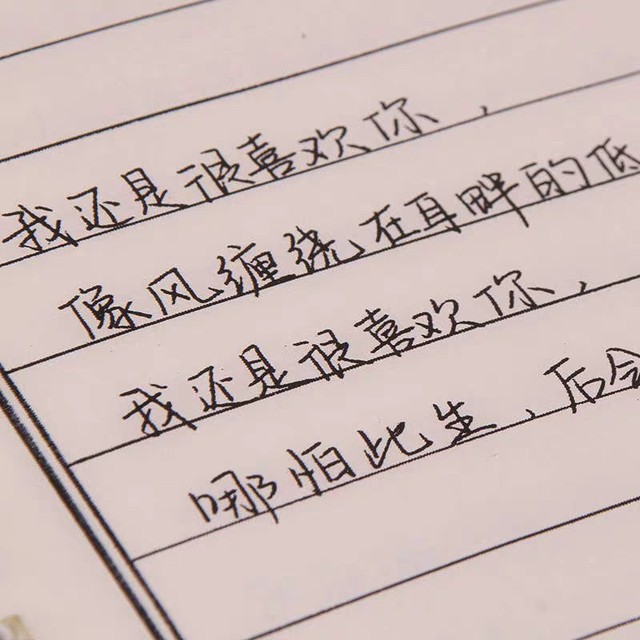 我还是很喜欢你，
像风缠绕在耳畔的低
我还是很喜欢你，
哪怕比生，后会